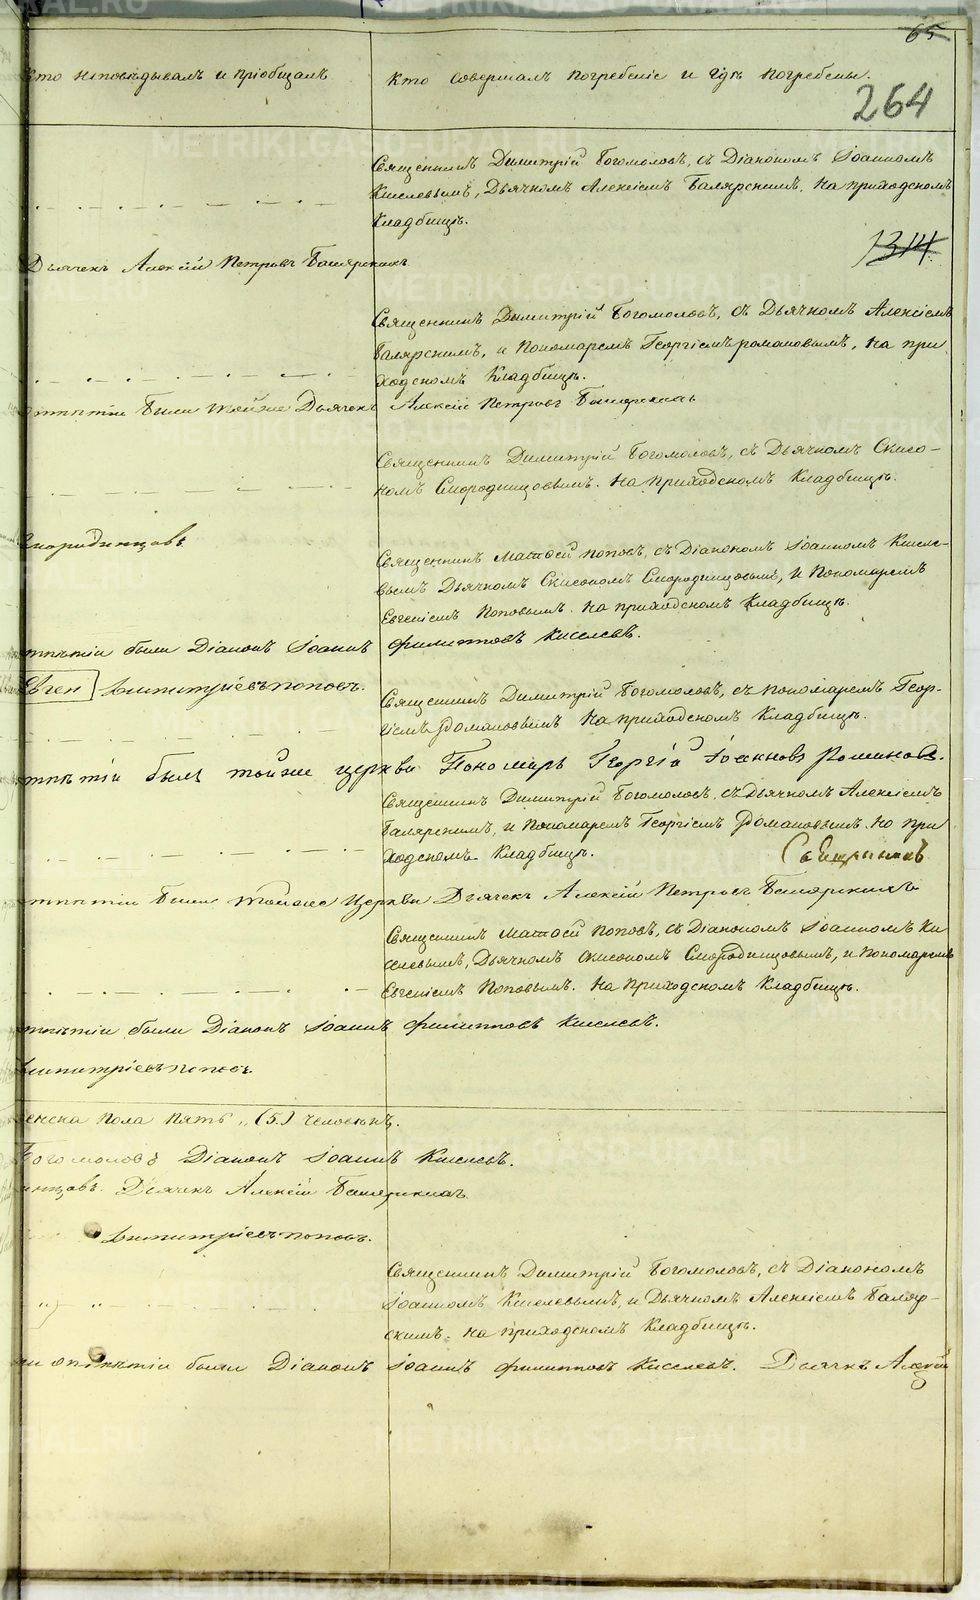 65
Кто исповѣдывалъ и пріобщалъ
Кто совершалъ погребеніе и гдѣ погребены.
264
Священникъ Димитрій Богомоловъ, съ Діакономъ Іоанномъ
Киселевымъ, Дьячкомъ Алексіемъ Балярскимъ. На приходскомъ
кладбищѣ.
1314
Дьячекъ Алексій Петровъ
Священникъ Димитрій Богомоловъ, съ Дьячкомъ Алексіемъ
Балярскимъ, и Пономаремъ Георгіемъ романовымъ, на при
ходскомъ Кладбищѣ.
были тойже Дьячекъ Алексій Петровъ
Священникъ Димитрій Богомоловъ, съ Дьячкомъ
Смородинцовымъ. На приходскомъ Кладбищѣ.
Священникъ Матѳей Поповъ, съ Діакономъ Іоанномъ Кисле-
вымъ Дьячкомъ Смородинцовымъ, и Пономаремъ
Евгеніемъ Поповымъ. На приходскомъ Кладбищѣ.
тпѣтіи были Діаконъ Іоаннъ Филипповъ Киселевъ.
Евген Димитріевъ поповъ.
Священникъ Димитрій Богомоловъ, съ пономаремъ Геор-
гіемъ Романовымъ на приходскомъ Кладбищѣ.
тпѣтіи былъ тойже церкви Пономарь Георгій Іоанновъ Романовъ.
Священникъ Димитрій Богомоловъ, съ дьячкомъ Алексіемъ
Балярскимъ, и Пономаремъ Георгіемъ Романовымъ. На при
ходскомъ Кладбищѣ.
тпѣтіи были тойже Церкви Дьячекъ Алексій Петровъ
Священникъ Матѳей Поповъ, съ Діакономъ Іоанномъ Ки
селевымъ, Дьячкомъ Смородинцовымъ, и Пономаремъ
Евгеніемъ Поповымъ. На Приходскомъ Кладбищѣ.
тпѣтіи были Діаконъ Іоаннъ Филипповъ Киселевъ.
Димитріевъ поповъ
женска пола пять „ (5.) человѣкъ.
Богомоловъ Діаконъ Іоаннъ Киселевъ.
инцовъ. Дьячекъ Алексій
Димитріевъ поповъ.
Священникъ Димитрій Богомоловъ, съ Діакономъ
Іоанномъ Киселевымъ, и Дьячкомъ Алексіемъ Баляр-
скимъ, на приходскомъ Кладбищѣ.
ри отпѣтіи были Діаконъ Іоаннъ Филипповъ Киселевъ. Дьячекъ Алексій
METRIKI.GASO-URAL.RU